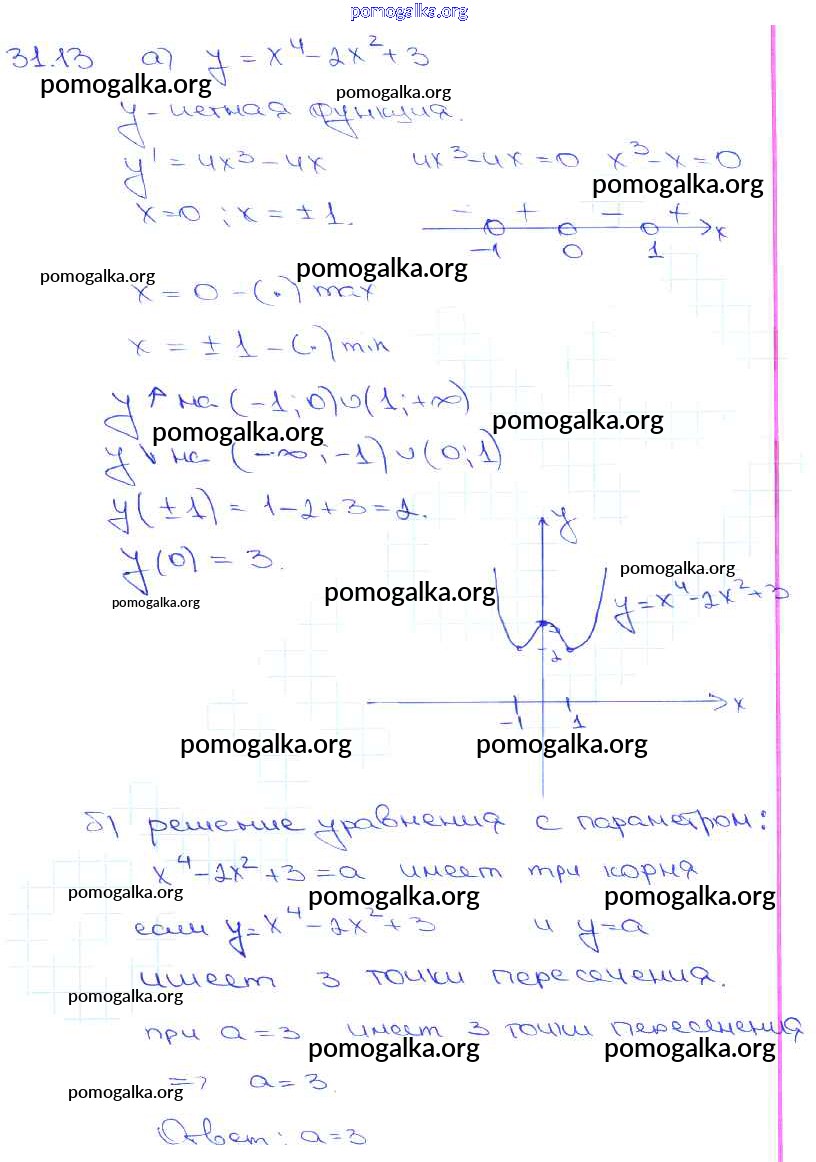 pomogalka.org
31.13 а) y = x⁴ - 2x² + 3
pomogalka.org pomogalka.org
y - четная функция.
y' = 4x³ - 4x 4x³ - 4x = 0 x³ - x = 0
pomogalka.org
x = 0 ; x = ± 1. - + - + x
-1 0 1
pomogalka.org pomogalka.org
x = 0 - (.) max
x = ± 1 - (.) min
y ↑ на (-1; 0) ∪ (1; +∞)
pomogalka.org pomogalka.org
y ↓ на (-∞; -1) ∪ (0; 1)
y(± 1) = 1 - 2 + 3 = 2.
y
y(0) = 3.
pomogalka.org
pomogalka.org pomogalka.org
y = x⁴ - 2x² + 3
3
2
-1 1 x
pomogalka.org pomogalka.org
б) решение уравнения с параметром:
x⁴ - 2x² + 3 = a имеет три корня
pomogalka.org pomogalka.org pomogalka.org
если y = x⁴ - 2x² + 3 и y = a
имеет 3 точки пересечения.
pomogalka.org
при a = 3 имеет 3 точки пересечения
pomogalka.org pomogalka.org
=> a = 3.
pomogalka.org
Ответ: a = 3